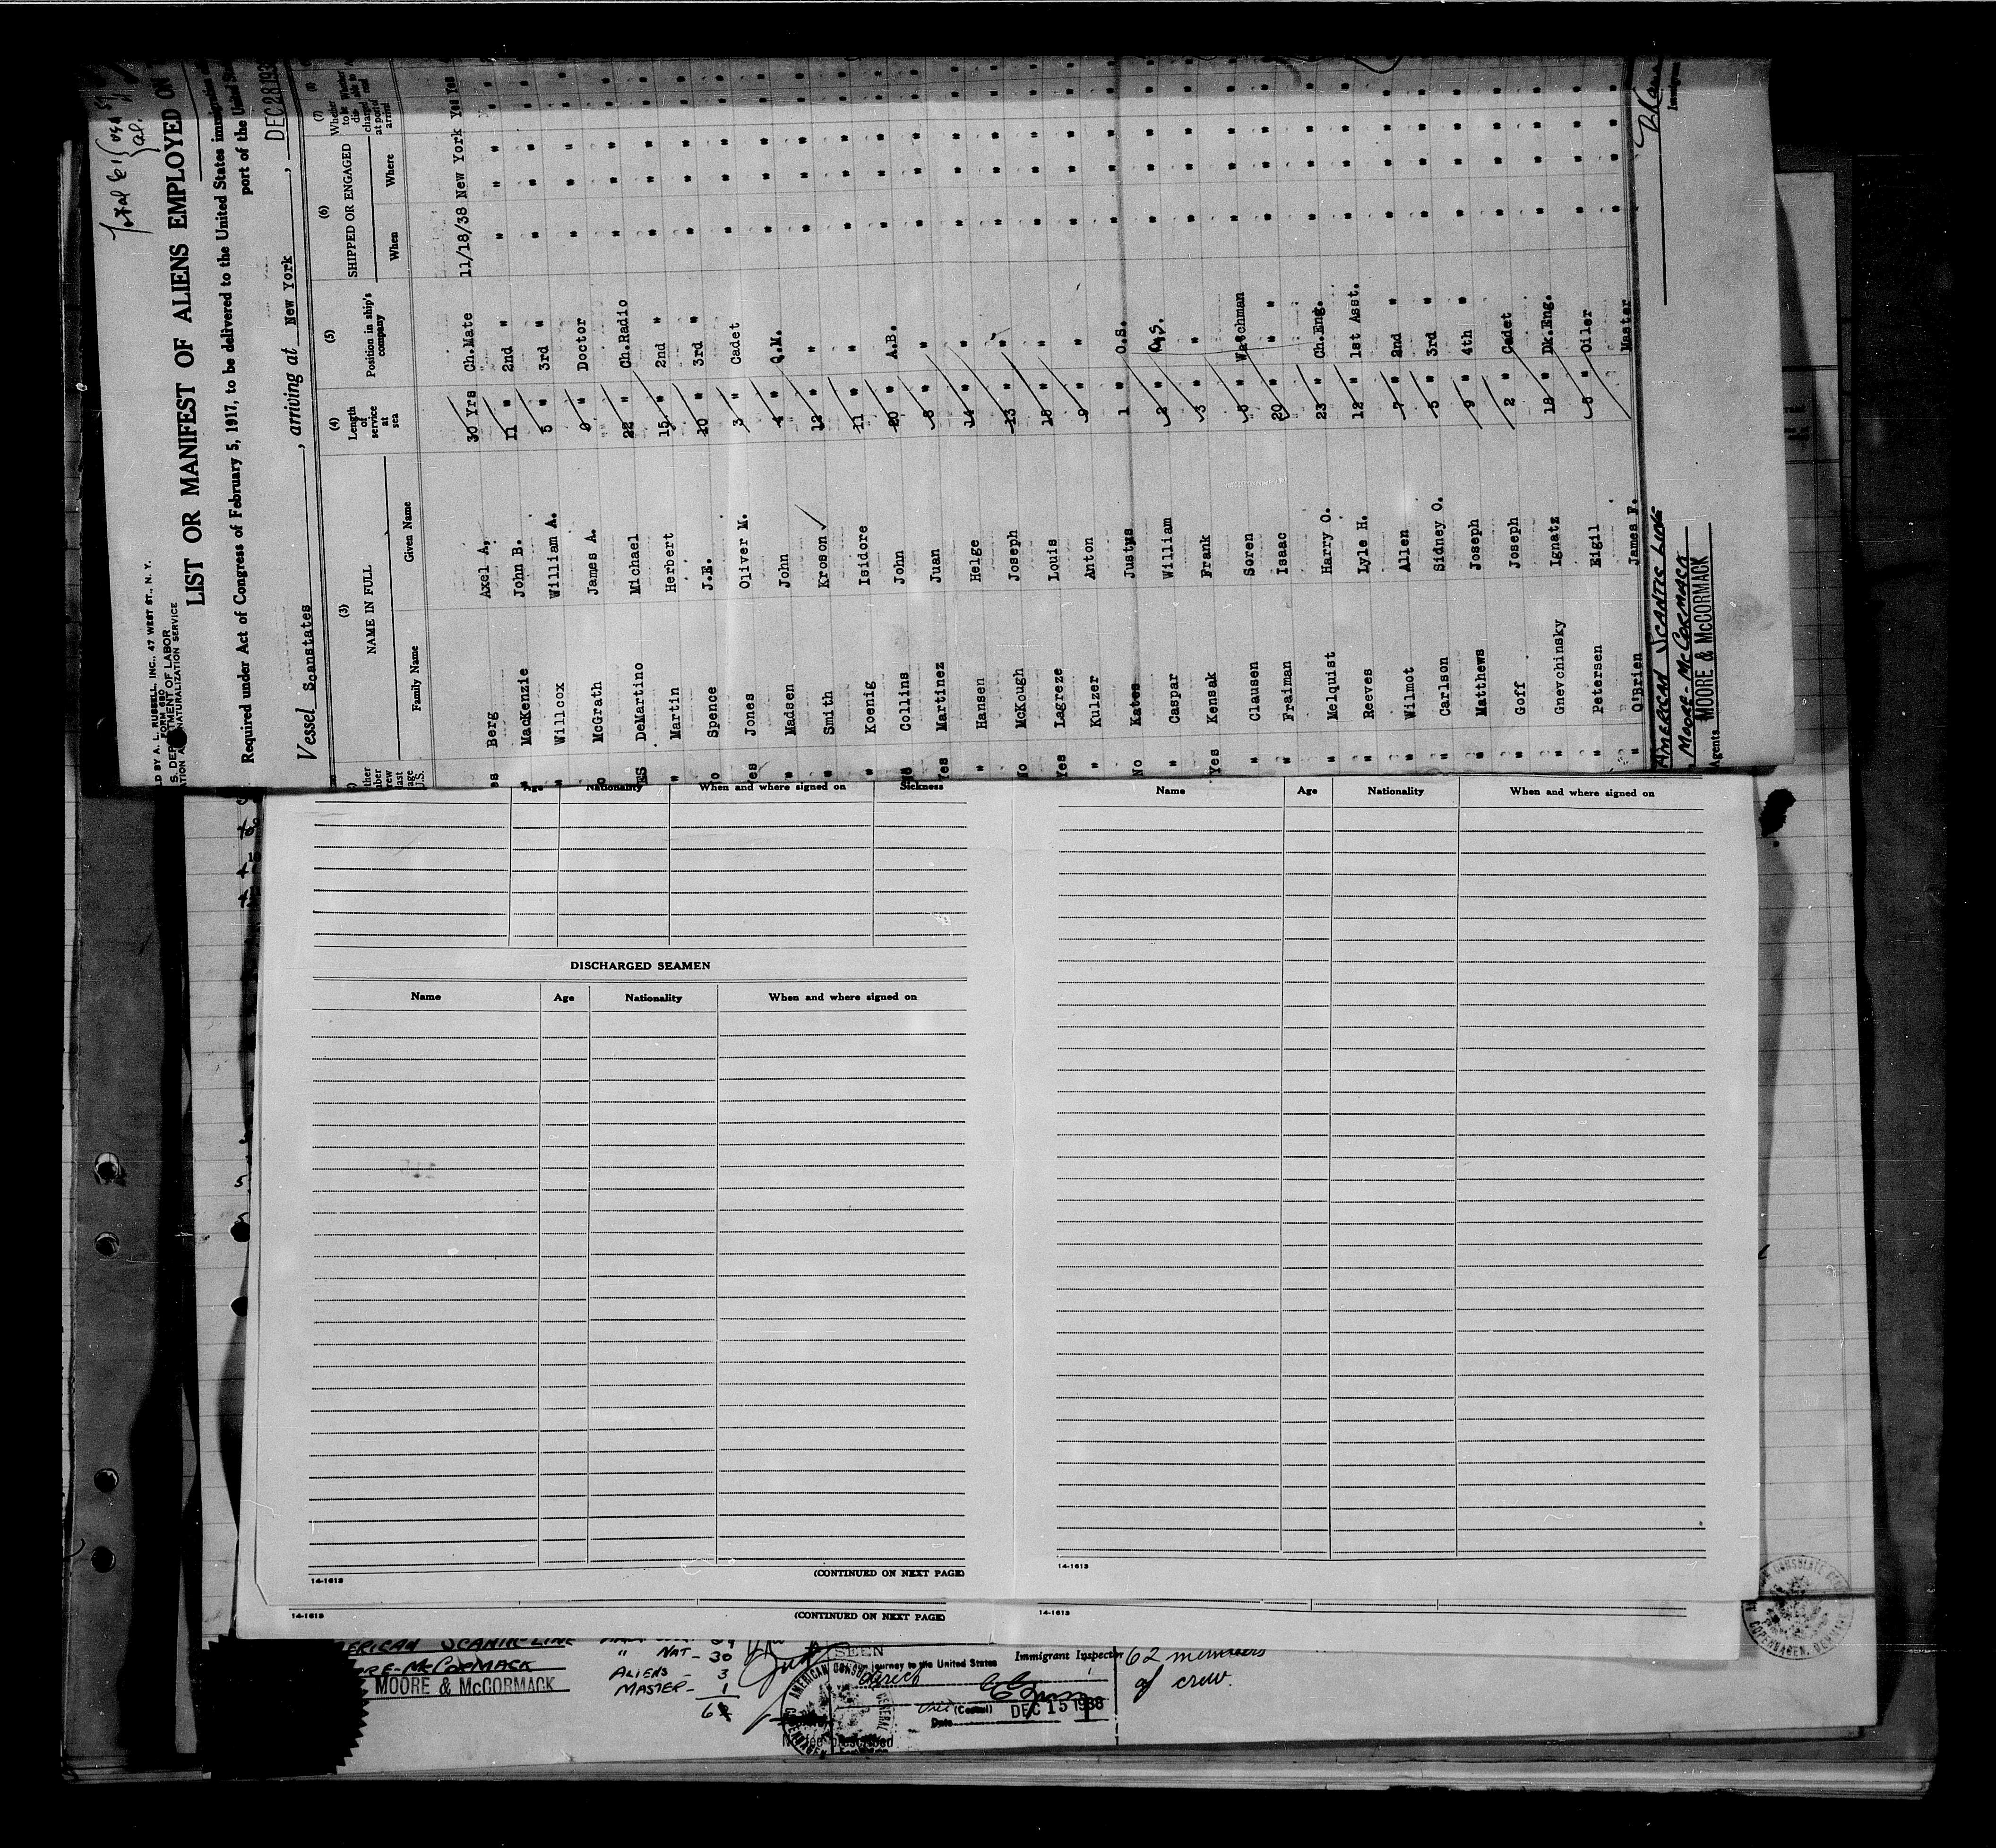 Total 61 { USA
al.
LD BY A. L. RUSSELL, INC., 47 WEST ST., N. Y.
FORM 680
S. DEPARTMENT OF LABOR
NATURALIZATION SERVICE
LIST OR MANIFEST OF ALIENS EMPLOYED ON
Required under Act of Congress of February 5, 1917, to be delivered to the United States immigration
port of the United
Vessel Scanstates, arriving at New York, DEC 28 193
(3) (4) (5) (6) (7)
NAME IN FULL Length of service at sea Position in ship's company SHIPPED OR ENGAGED Whether to be discharged at port of arrival
Family Name Given Name When Where
es Berg Axel A, 30 Yrs Ch.Mate 11/18/38 New York Yes Yes
" MacKenzie John B. 11 " 2nd " " " " "
" Willcox William A. 5 " 3rd " " " " "
No McGrath James A. 9 " Doctor " " " "
YES DeMartino Michael 22 " Ch.Radio " " " "
" Martin Herbert 15 " 2nd " " " " "
No Spence J.E. 10 " 3rd " " " " "
Yes Jones Oliver M. 3 " Cadet " " " "
" Madsen John 4 " Q.M. " " " "
" Smith Kroson 12 " " " " " "
" Koenig Isidore 11 " " " " " "
Collins John 20 " A.B. " " " "
Yes Martinez Juan 8 " " " " " "
" Hansen Helge 14 " " " " " "
No McKough Joseph 13 " " " " " "
Yes Lagreze Louis 18 " " " " " "
" Kulzer Anton 9 " " " " " "
No Kates Justus 1 " O.S. " " " "
" Caspar William 2 " O.S. " " " "
Yes Kensak Frank 3 " " " " " "
" Clausen Soren 6 " Watchman " " " "
" Fraiman Isaac 20 " " " " " "
" Melquist Harry O. 23 " Ch.Eng. " " " "
" Reeves Lyle H. 12 " 1st Asst. " " " "
" Wilmot Allen 7 " 2nd " " " " "
" Carlson Sidney O. 5 " 3rd " " " " "
" Matthews Joseph 9 " 4th " " " " "
" Goff Joseph 2 " Cadet " " " "
" Gnevchinsky Ignatz 18 " Dk.Eng. " " " "
" Petersen Eigil 8 " Oiler " " " "
" O'Brien James F. Master " " " "
AMERICAN SCANTIC LINE
MOORE-McCORMACK
Agents MOORE & McCORMACK
Age Nationality When and where signed on Sickness
DISCHARGED SEAMEN
Name Age Nationality When and where signed on
14-1613 (CONTINUED ON NEXT PAGE)
14-1613 (CONTINUED ON NEXT PAGE)
Name Age Nationality When and where signed on
14-1613
14-1613
ERICAN SCANTIC LINE
RE-McCORMACK
MOORE & McCORMACK
" NAT - 30
ALIENS - 3
MASTER - 1
SEEN
journey to the United States
direct
(Consul)
Date DEC 15 1938
AMERICAN CONSUL GENERAL
COPENHAGEN
No fee prescribed
Immigrant Inspector
62 members
of crew.
CONSULATE
COPENHAGEN, DENMARK